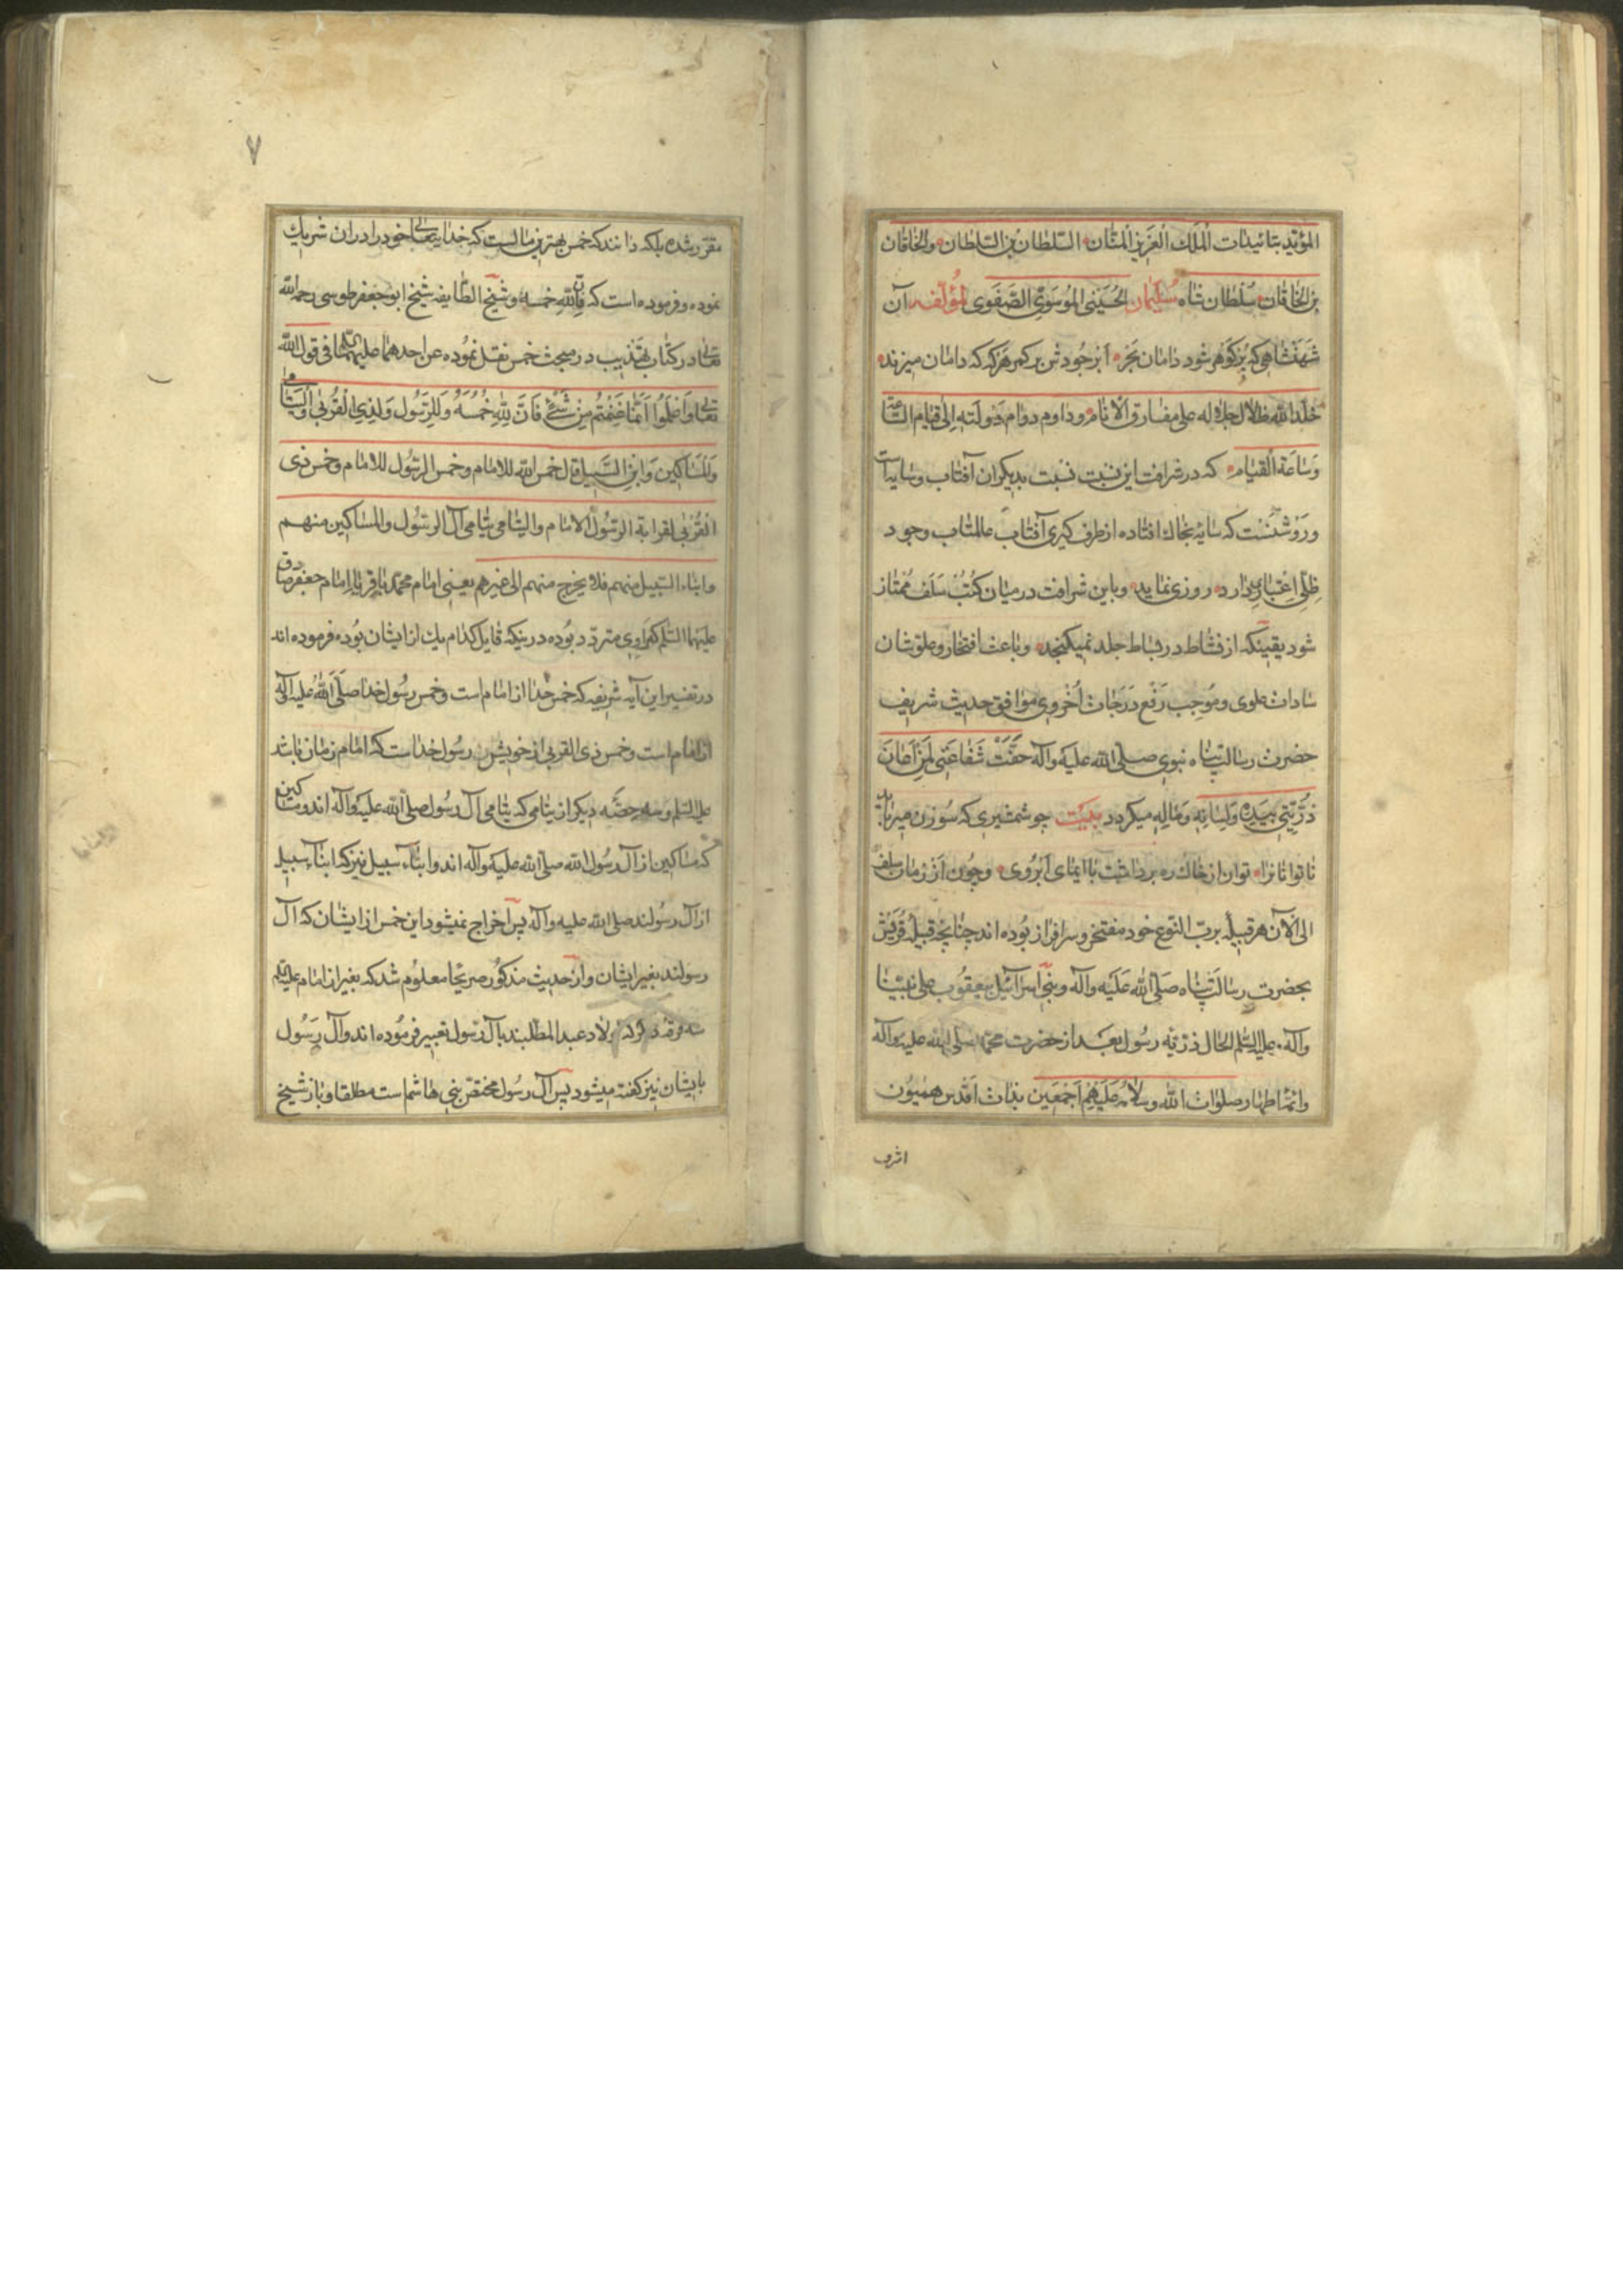 المؤید بتائیدات الملک العزیز المنّان السّلطان بن السّلطان والخاقان
بن الخاقان سلطان شاه سلیمان الحُسینی الموسوی الصّفوی لمؤلّفه آن
شهنشاهی که بزکوهر شود دامان بحر ابر جودش بر کمر هرکه که دامان میزند
خلّد الله ظلال جلاله علی مفارق الانام وداوم دوام دولته الی قیام الساعة
وساعة القیام که در شرافت این نسبت نسبت بدیکران آفتاب وسایه است
وروشنست که سایه بخاک افتاده از طرف کیری آفتاب عالمتاب وجود
ظلّی اعتباری دارد روزی نماید وباین شرافت درمیان کتب سلف ممتاز
شود یقینکه از نشاط در رباط جلد نمیکنجد وباعث افتخار وعلوّ شان
سادات علوی وموجب رفع درجات اُخروی موافق حدیث شریف
حضرت رسالت پناه نبوی صلی الله علیه وآله حقّت شفاعتی لمن اعان
ذُرّیّتی بیده ولسانه وماله میکردد بیت چو شمشیری که سوزن میرباید
ناتوانانرا توان از خاک ره برداشت با ایمای ابروی وچون از زمان سلف
الی الآن هر قبیله بربّ النوع خود مفتخر وسرافراز بوده اند چنانچه قبیله قریش
بحضرت رسالت پناه صلّی الله علیه وآله وبنی اسرآئیل بیعقوب علی نبیّنا
وآله وعلیه السّلم الحال ذرّیّه رسول بعد از حضرت محمّد صلّی الله علیه وآله
وائمّۀ اطهار صلوات الله وسلامه علیهم اجمعین بذات اقدس همیون
اشرف
۷
مقرر شده بلکه دانند که خمس بهترین مالیست که خدایتعالی خود را در ان شریک
نموده وفرموده است که فانّ لله خمسه وشیخ الطّایفه شیخ ابوجعفر طوسی رحمه الله
تعالی در کتاب تهذیب در مبحث خمس نقل نموده عن احدهما علیهما السّلم فی قول الله
تعالی واعلموا انّما غنمتم من شیء فانّ لله خمسه وللرّسول ولذی القربی والیتامی
والمساکین وابن السّبیل قال خمس الله للامام وخمس الرّسول للامام وخمس ذی
القربی لقرابة الرّسول الامام والیتامی یتامی آل الرسول والمساکین منهم
وابناء السّبیل منهم فلا یخرج منهم الی غیرهم یعنی امام محمّد باقر یا امام جعفر صادق
علیهما السّلم که راوی متردّد بوده در ینکه قایل کدام یک از ایشان بوده فرموده اند
در تفسیر این آیه شریفه که خمس خدا از امام است وخمس رسول خدا صلّی الله علیه وآله
از امام است وخمس ذی القربی از خویش رسول خداست که امام زمان باشد
علیه السّلم وسه حصّه دیکر از یتامی که یتامی آل رسول صلّی الله علیه وآله اند ومساکین
که مساکین از آل رسول الله صلّی الله علیه وآله اند وابنآء سبیل نیز که ابنآء سبیل
از آل رسولند صلی الله علیه وآله پس اخراج نمیشود این خمس از ایشان که آل
رسولند بغیر ایشان واز حدیث مذکور صریحا معلوم شد که بغیر از امام علیه السّلم
سه فرقه دیگر که اولاد عبد المطّلبند بآل رسول تعبیر فرموده اند وآل رسول
بایشان نیز کفته میشود پس آل رسول مختصّ بنی هاشم است مطلقا وباز شیخ